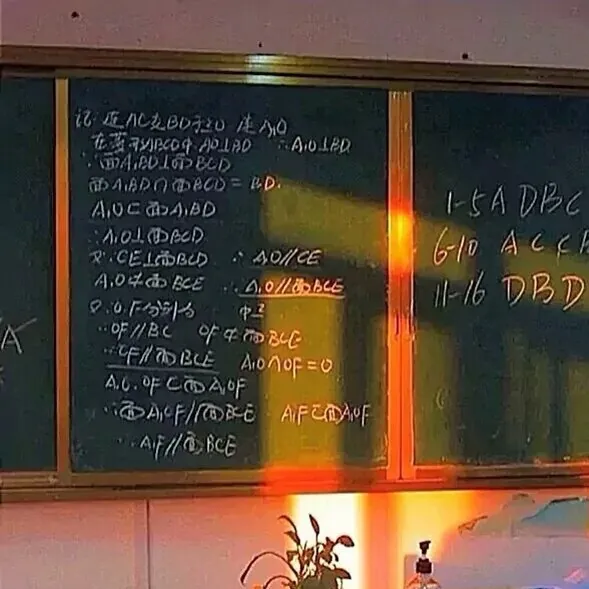 证:连AC交BD于O 连A₁O
在菱形ABCD中 AO⊥BD ∴A₁O⊥BD
∵面A₁BD⊥面BCD
面A₁BD∩面BCD=BD.
A₁O⊂面A₁BD
∴A₁O⊥面BCD
又∵CE⊥面BCD ∴A₁O//CE
A₁O⊄面BCE ∴A₁O//面BCE
又∵O.F分别为 中点
∴OF//BC OF⊄面BCE
∴OF//面BCE A₁O∩OF=O
A₁O.OF⊂面A₁OF
∴面A₁OF//面BCE A₁F⊂面A₁OF
∴A₁F//面BCE
1-5 A DBC
6-10 A C C
11-16 DBD
A